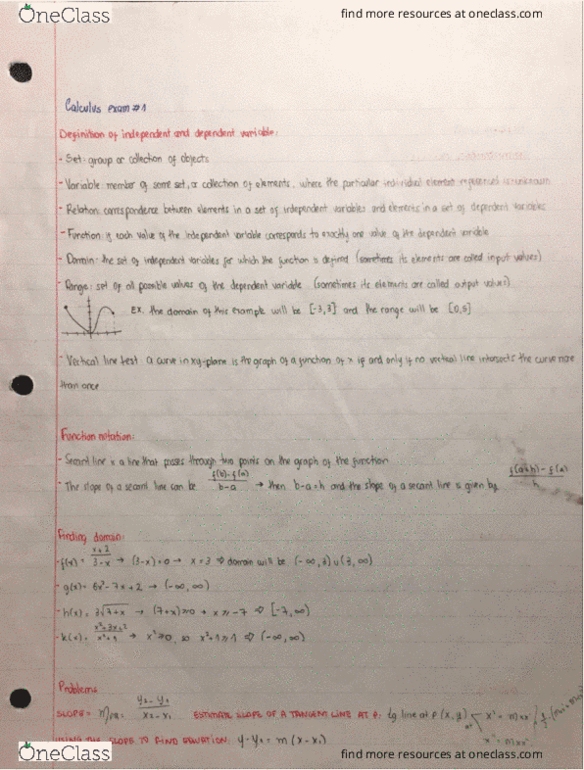 OneClass
find more resources at oneclass.com
Calculus exam #1
Definition of independent and dependent variable:
- Set: group or collection of objects
- Variable: member of some set, or collection of elements, where the particular individual element represented is unknown
- Relation: correspondence between elements in a set of independent variables and elements in a set of dependent variables
- Function: if each value of the independent variable corresponds to exactly one value of the dependent variable
- Domain: the set of independent variables for which the function is defined (sometimes its elements are called input values)
- Range: set of all possible values of the dependent variable (sometimes its elements are called output values)
EX. the domain of this example will be [-3,3] and the range will be [0,5]
- Vertical line test: a curve in xy-plane is the graph of a function of x if and only if no vertical line intersects the curve more
than once
Function notation:
- Secant line is a line that passes through two points on the graph of the function
- The slope of a secant line can be f(b)-f(a) / b-a → then b-a=h and the slope of a secant line is given by f(a+h)-f(a) / h
Finding domain:
- f(x) = x+2 / 3-x → (3-x)=0 → x=3 ⇒ domain will be (-∞,3)∪(3,∞)
- g(x)= 6x²-7x+2 → (-∞,∞)
- h(x)= 3√7+x → (7+x)≥0 → x≥-7 ⇒ [-7,∞)
- k(x)= x²+3x+2 / x²+1 → x²≥0, so x²+1≥1 ⇒ (-∞,∞)
Problems
SLOPE = y₂-y₁ / x₂-x₁ ESTIMATE SLOPE OF A TANGENT LINE AT P: tg line at P(x,y)
USING THE SLOPE TO FIND EQUATION: y-y₁ = m(x-x₁)
OneClass
find more resources at oneclass.com